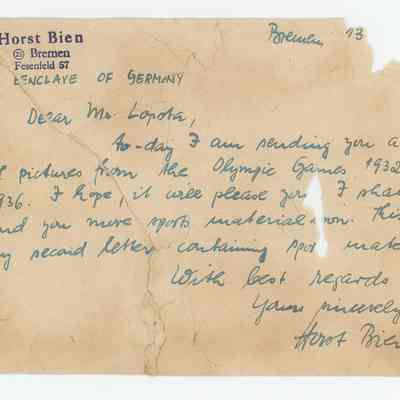 Horst Bien
Bremen 13
(23) Bremen
Fesenfeld 57
ENCLAVE OF GERMANY
Dear Mr. Lopota,
to-day I am sending you a
pictures from the Olympic Games 1932
936. I hope, it will please you. I shall
nd you more sports material soon. This
y second letter containing spor mate
With best regards
Yours sincerely
Horst Bien